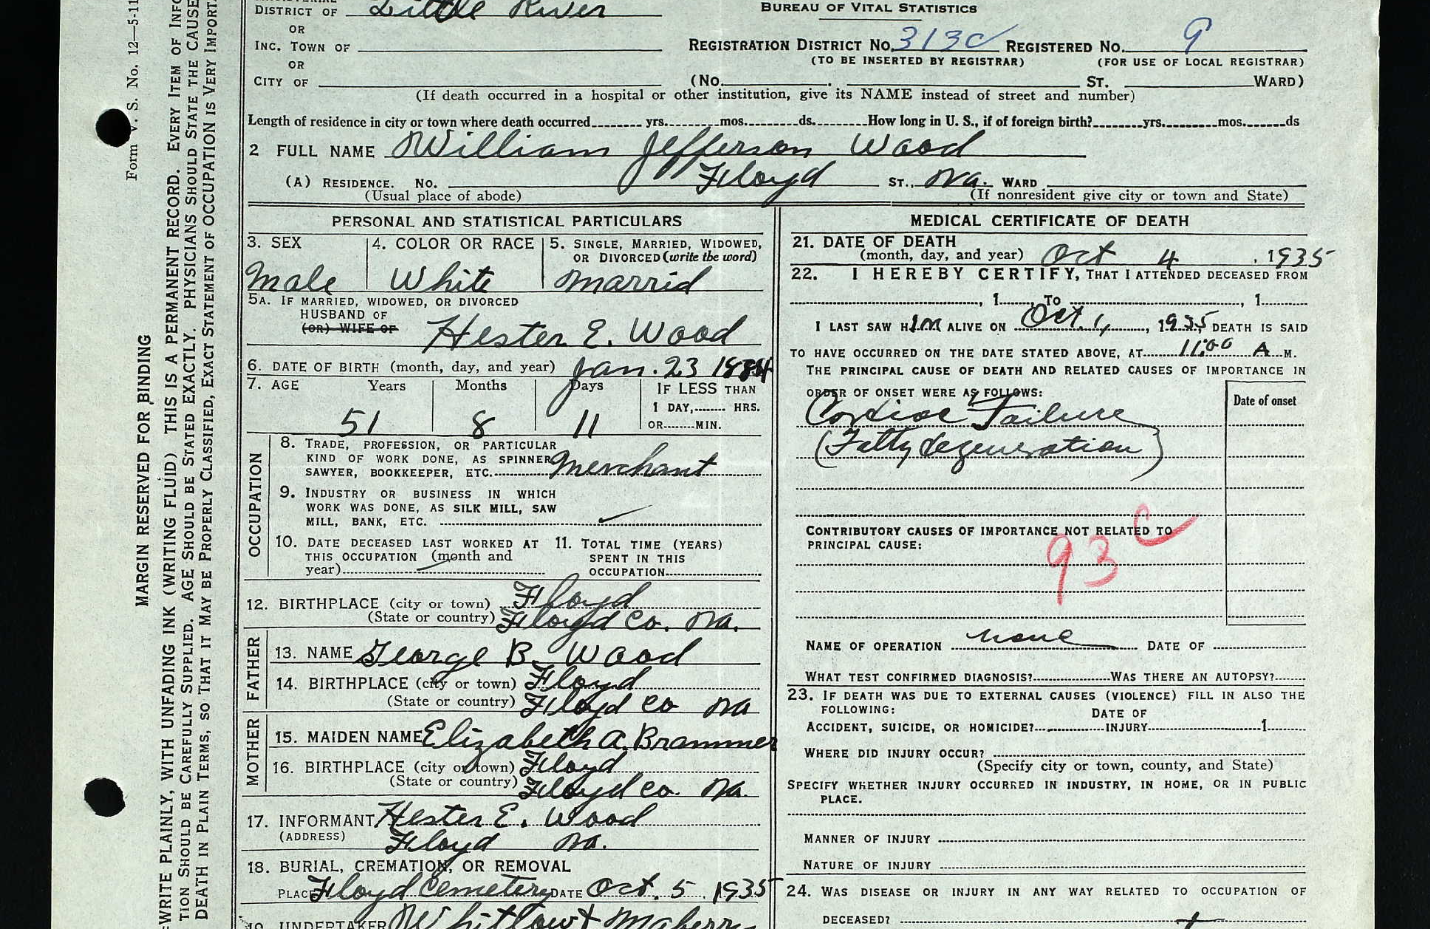 DISTRICT OF Little River
BUREAU OF VITAL STATISTICS
OR
INC. TOWN OF
REGISTRATION DISTRICT NO. 313C REGISTERED NO. 9
(TO BE INSERTED BY REGISTRAR) (FOR USE OF LOCAL REGISTRAR)
OR
CITY OF (No. ST. WARD)
(If death occurred in a hospital or other institution, give its NAME instead of street and number)
Length of residence in city or town where death occurred yrs. mos. ds. How long in U. S., if of foreign birth? yrs. mos. ds
2 FULL NAME William Jefferson Wood
(A) RESIDENCE. No. Floyd ST., Va. WARD
(Usual place of abode) (If nonresident give city or town and State)
PERSONAL AND STATISTICAL PARTICULARS
3. SEX 4. COLOR OR RACE 5. SINGLE, MARRIED, WIDOWED,
OR DIVORCED (write the word)
Male White Marrid
5A. IF MARRIED, WIDOWED, OR DIVORCED
HUSBAND OF
(OR) WIFE OF Hester E. Wood
6. DATE OF BIRTH (month, day, and year) Jan. 23 1884
7. AGE Years Months Days IF LESS THAN
1 DAY, HRS.
51 8 11 OR MIN.
OCCUPATION
8. TRADE, PROFESSION, OR PARTICULAR
KIND OF WORK DONE, AS SPINNER
SAWYER, BOOKKEEPER, ETC. Merchant
9. INDUSTRY OR BUSINESS IN WHICH
WORK WAS DONE, AS SILK MILL, SAW
MILL, BANK, ETC.
10. DATE DECEASED LAST WORKED AT 11. TOTAL TIME (YEARS)
THIS OCCUPATION (month and SPENT IN THIS
year) OCCUPATION
12. BIRTHPLACE (city or town) Floyd
(State or country) Floyd Co. Va.
FATHER
13. NAME George B. Wood
14. BIRTHPLACE (city or town) Floyd
(State or country) Floyd Co Va
MOTHER
15. MAIDEN NAME Elizabeth A. Brammer
16. BIRTHPLACE (city or town) Floyd
(State or country) Floyd Co. Va.
17. INFORMANT Hester E. Wood
(ADDRESS) Floyd Va.
18. BURIAL, CREMATION, OR REMOVAL
PLACE Floyd Cemetery DATE Oct. 5, 1935
19. UNDERTAKER Whitlow & Maberry
MEDICAL CERTIFICATE OF DEATH
21. DATE OF DEATH
(month, day, and year) Oct 4, 1935
22. I HEREBY CERTIFY, THAT I ATTENDED DECEASED FROM
, 1 TO , 1
I LAST SAW HIM ALIVE ON Oct 1, 1935 DEATH IS SAID
TO HAVE OCCURRED ON THE DATE STATED ABOVE, AT 11:00 A M.
THE PRINCIPAL CAUSE OF DEATH AND RELATED CAUSES OF IMPORTANCE IN
ORDER OF ONSET WERE AS FOLLOWS:
Date of onset
Cardiac Failure
(Fatty degeneration)
CONTRIBUTORY CAUSES OF IMPORTANCE NOT RELATED TO
PRINCIPAL CAUSE:
93 C
NAME OF OPERATION none DATE OF
WHAT TEST CONFIRMED DIAGNOSIS? WAS THERE AN AUTOPSY?
23. IF DEATH WAS DUE TO EXTERNAL CAUSES (VIOLENCE) FILL IN ALSO THE
FOLLOWING: DATE OF
ACCIDENT, SUICIDE, OR HOMICIDE? INJURY 1
WHERE DID INJURY OCCUR?
(Specify city or town, county, and State)
SPECIFY WHETHER INJURY OCCURRED IN INDUSTRY, IN HOME, OR IN PUBLIC
PLACE.
MANNER OF INJURY
NATURE OF INJURY
24. WAS DISEASE OR INJURY IN ANY WAY RELATED TO OCCUPATION OF
DECEASED?
Form V. S. No. 12—5-11
MARGIN RESERVED FOR BINDING
WRITE PLAINLY, WITH UNFADING INK (WRITING FLUID) THIS IS A PERMANENT RECORD. EVERY ITEM OF
TION SHOULD BE CAREFULLY SUPPLIED. AGE SHOULD BE STATED EXACTLY. PHYSICIANS SHOULD STATE THE CAUSE
DEATH IN PLAIN TERMS, SO THAT IT MAY BE PROPERLY CLASSIFIED, EXACT STATEMENT OF OCCUPATION IS VERY